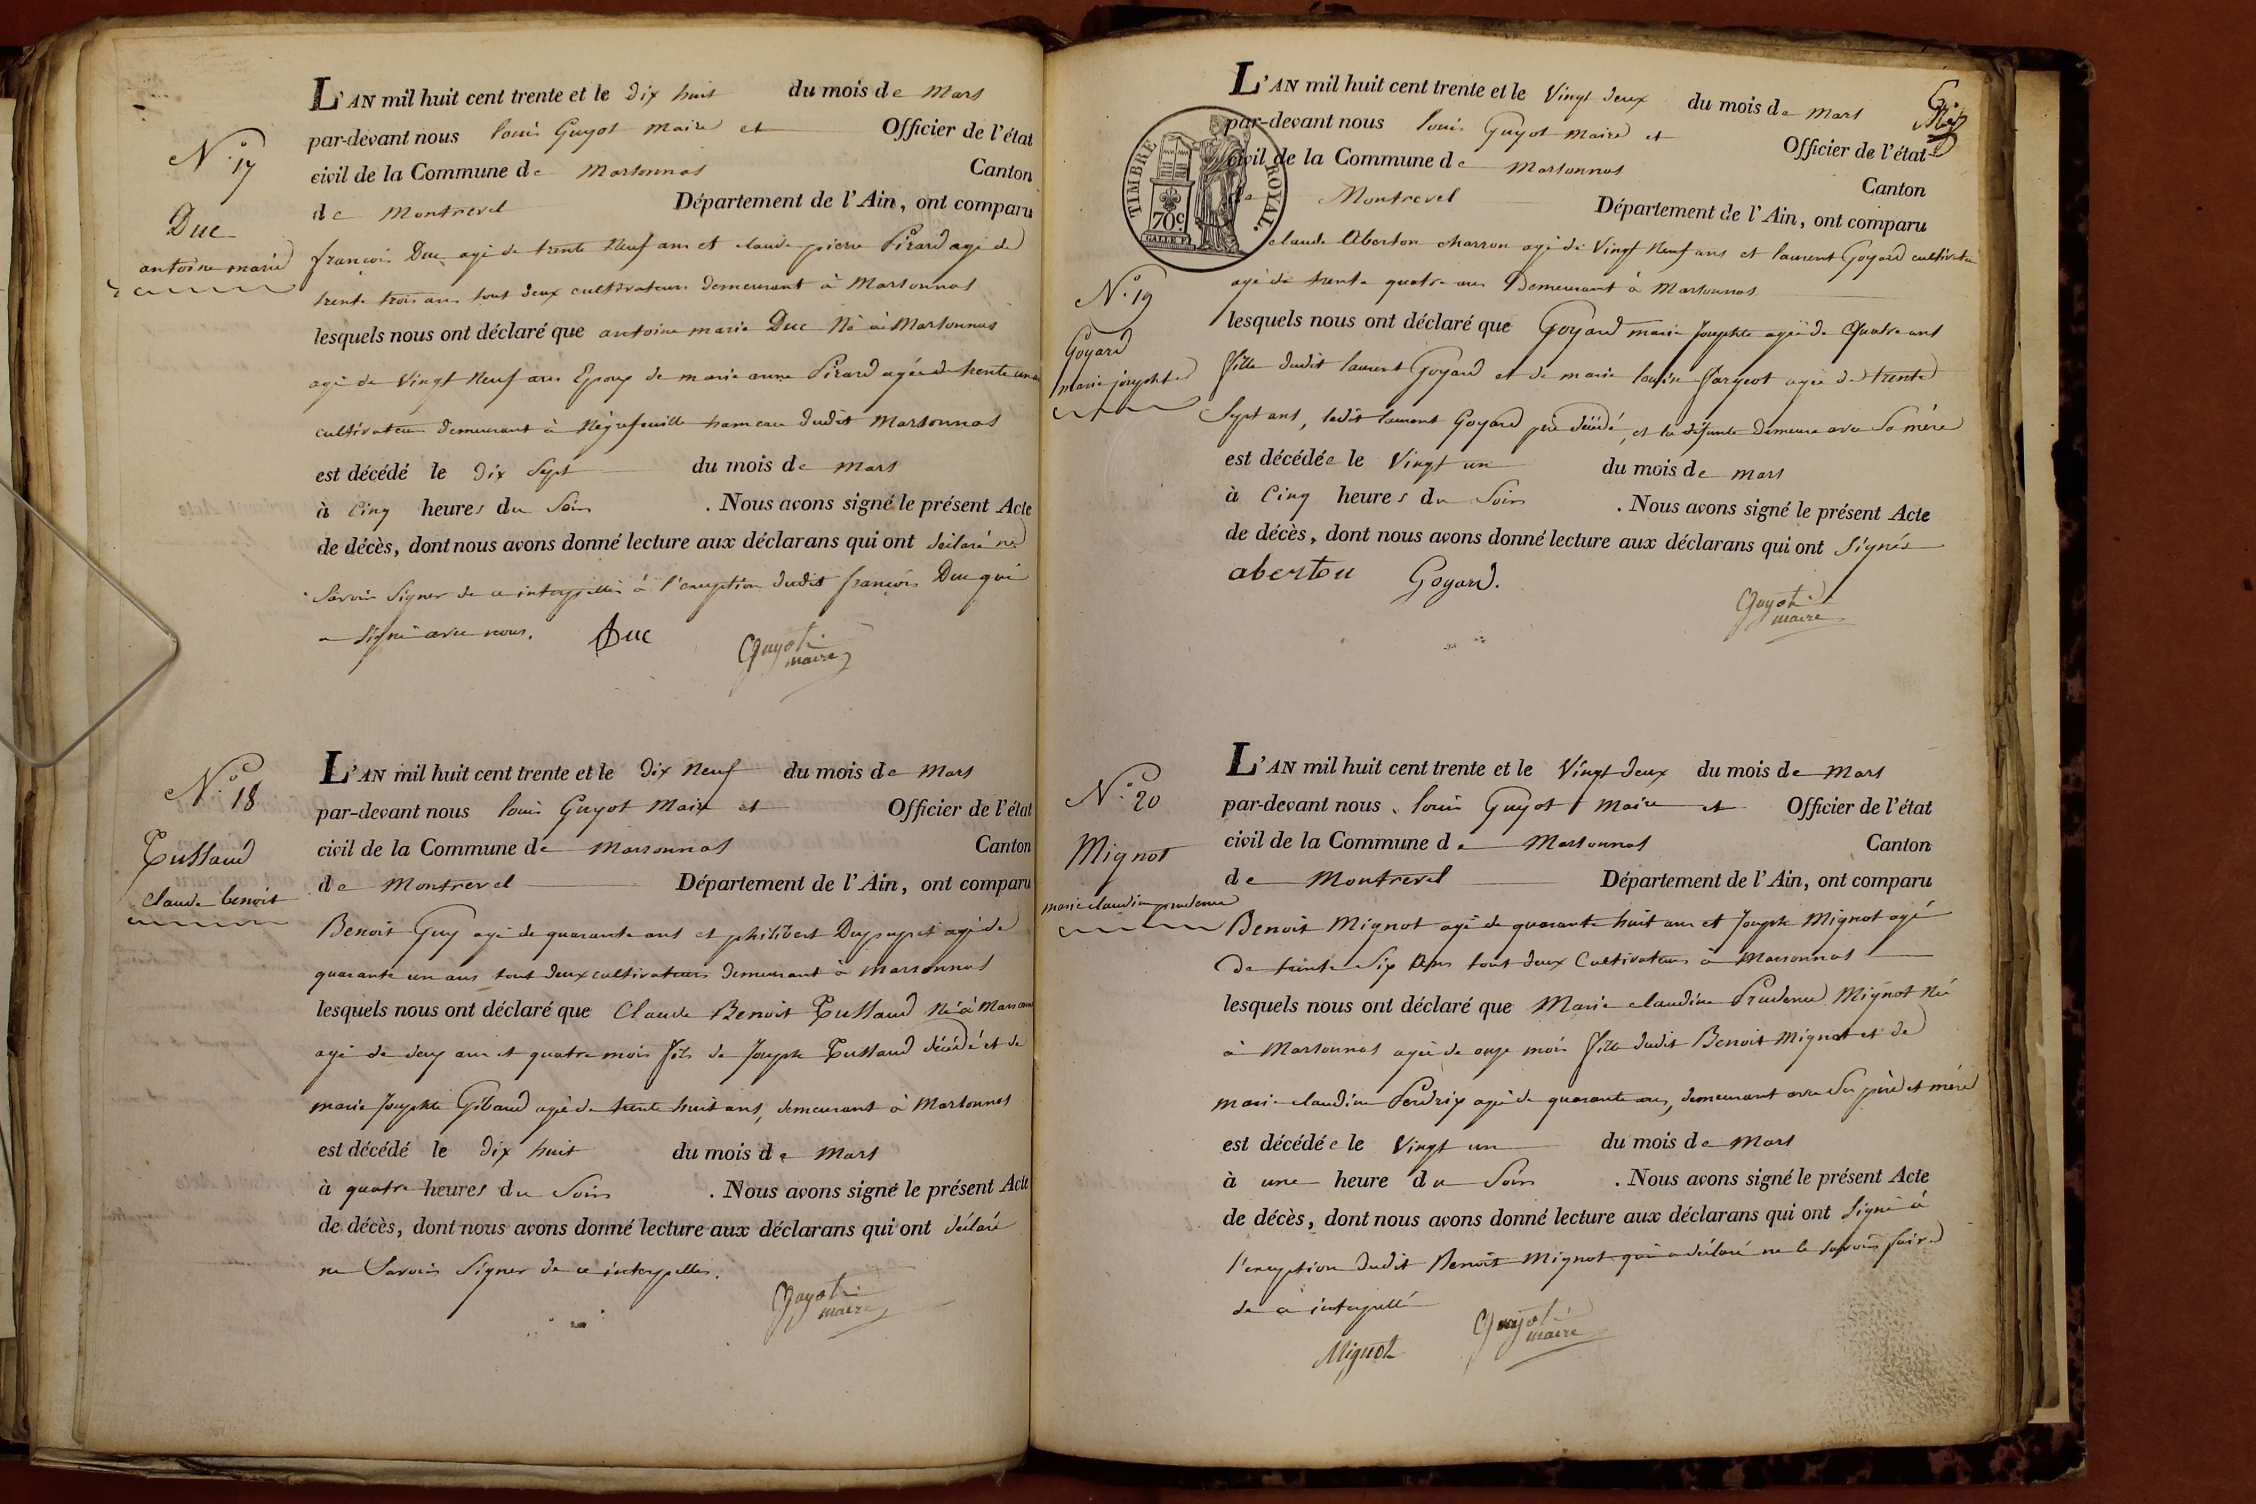 N° 17
Duc
antoine marie
L'AN mil huit cent trente et le dix huit du mois de Mars
par-devant nous louis Guyot Maire et Officier de l'état
civil de la Commune de Marsonnas Canton
de Montrevel Département de l'Ain, ont comparu
françois Duc agé de trente Neuf ans et claude pierre Pirard agé de
trente trois ans tout deux cultivateurs demeurant à Marsonnas
lesquels nous ont déclaré que antoine marie Duc Né à Marsonnas
agé de vingt Neuf ans Epoux de marie anne Pirard agée de trente un ans
cultivateur demeurant à Négrefeuille hameau dudit Marsonnas
est décédé le dix sept du mois de mars
à cinq heures du Soir . Nous avons signé le présent Acte
de décès, dont nous avons donné lecture aux déclarans qui ont déclaré ne
Savoir Signer de ce interpellés à l'exception dudit françois Duc qui
a signé avec nous. Duc
Guyot
maire
N° 18
Tussaud
Claude benoit
L'AN mil huit cent trente et le dix Neuf du mois de Mars
par-devant nous louis Guyot Maire et Officier de l'état
civil de la Commune de Marsonnas Canton
de Montrevel Département de l'Ain, ont comparu
Benoit Guy agé de quarante ans et philibert Dupupet agé de
quarante un ans tout deux cultivateurs demeurant à Marsonnas
lesquels nous ont déclaré que Claude Benoit Tussaud Né à Marsonnas
agé de deux ans et quatre mois fils de Joseph Tussaud décédé et de
marie Josephte Gibaud agée de trente huit ans, demeurant à Marsonnas
est décédé le dix huit du mois de Mars
à quatre heures du Soir . Nous avons signé le présent Acte
de décès, dont nous avons donné lecture aux déclarans qui ont déclaré
ne Savoir Signer de ce interpellés.
Guyot
maire
TIMBRE ROYAL.
70c
N° 19
Goyard
marie josephte
L'AN mil huit cent trente et le Vingt deux du mois de mars
par-devant nous louis Guyot Maire et Officier de l'état
civil de la Commune de Marsonnas Canton
de Montrevel Département de l'Ain, ont comparu
claude Aberton charron agé de Vingt Neuf ans et laurent Goyard cultivateur
agé de trente quatre ans Demeurant à Marsonnas
lesquels nous ont déclaré que Goyard marie Josephte agée de Quatre ans
fille dudit laurent Goyard et de marie louise fargeot agée de trente
Sept ans, ledit laurent Goyard père décédé, et la défunte demeure avec Sa mère
est décédée le Vingt un du mois de mars
à Cinq heures du Soir . Nous avons signé le présent Acte
de décès, dont nous avons donné lecture aux déclarans qui ont Signés
aberton Goyard.
Guyot
maire
N° 20
Mignot
marie claudine prudence
L'AN mil huit cent trente et le Vingt deux du mois de Mars
par-devant nous louis Guyot Maire et Officier de l'état
civil de la Commune de Marsonnas Canton
de Montrevel Département de l'Ain, ont comparu
Benoit Mignot agé de quarante huit ans et Joseph Mignot agé
de trente Six Ans tout deux Cultivateurs à Marsonnas
lesquels nous ont déclaré que Marie claudine Prudence Mignot Née
à Marsonnas agée de onze mois fille dudit Benoit Mignot et de
marie claudine Perdrix agée de quarante ans, demeurant avec Ses père et mère
est décédée le Vingt un du mois de Mars
à une heure du Soir . Nous avons signé le présent Acte
de décès, dont nous avons donné lecture aux déclarans qui ont Signé à
l'exception dudit Benoit Mignot qui a déclaré ne le Savoir faire
de ce interpellé
Mignot
Guyot
maire